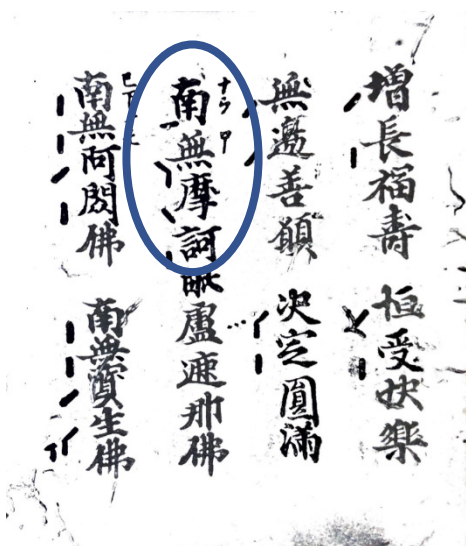 增長福壽 恒受快樂
無邊善願 决定圓滿
南無摩訶毗盧遮那佛
南無阿閦佛 南無寶生佛